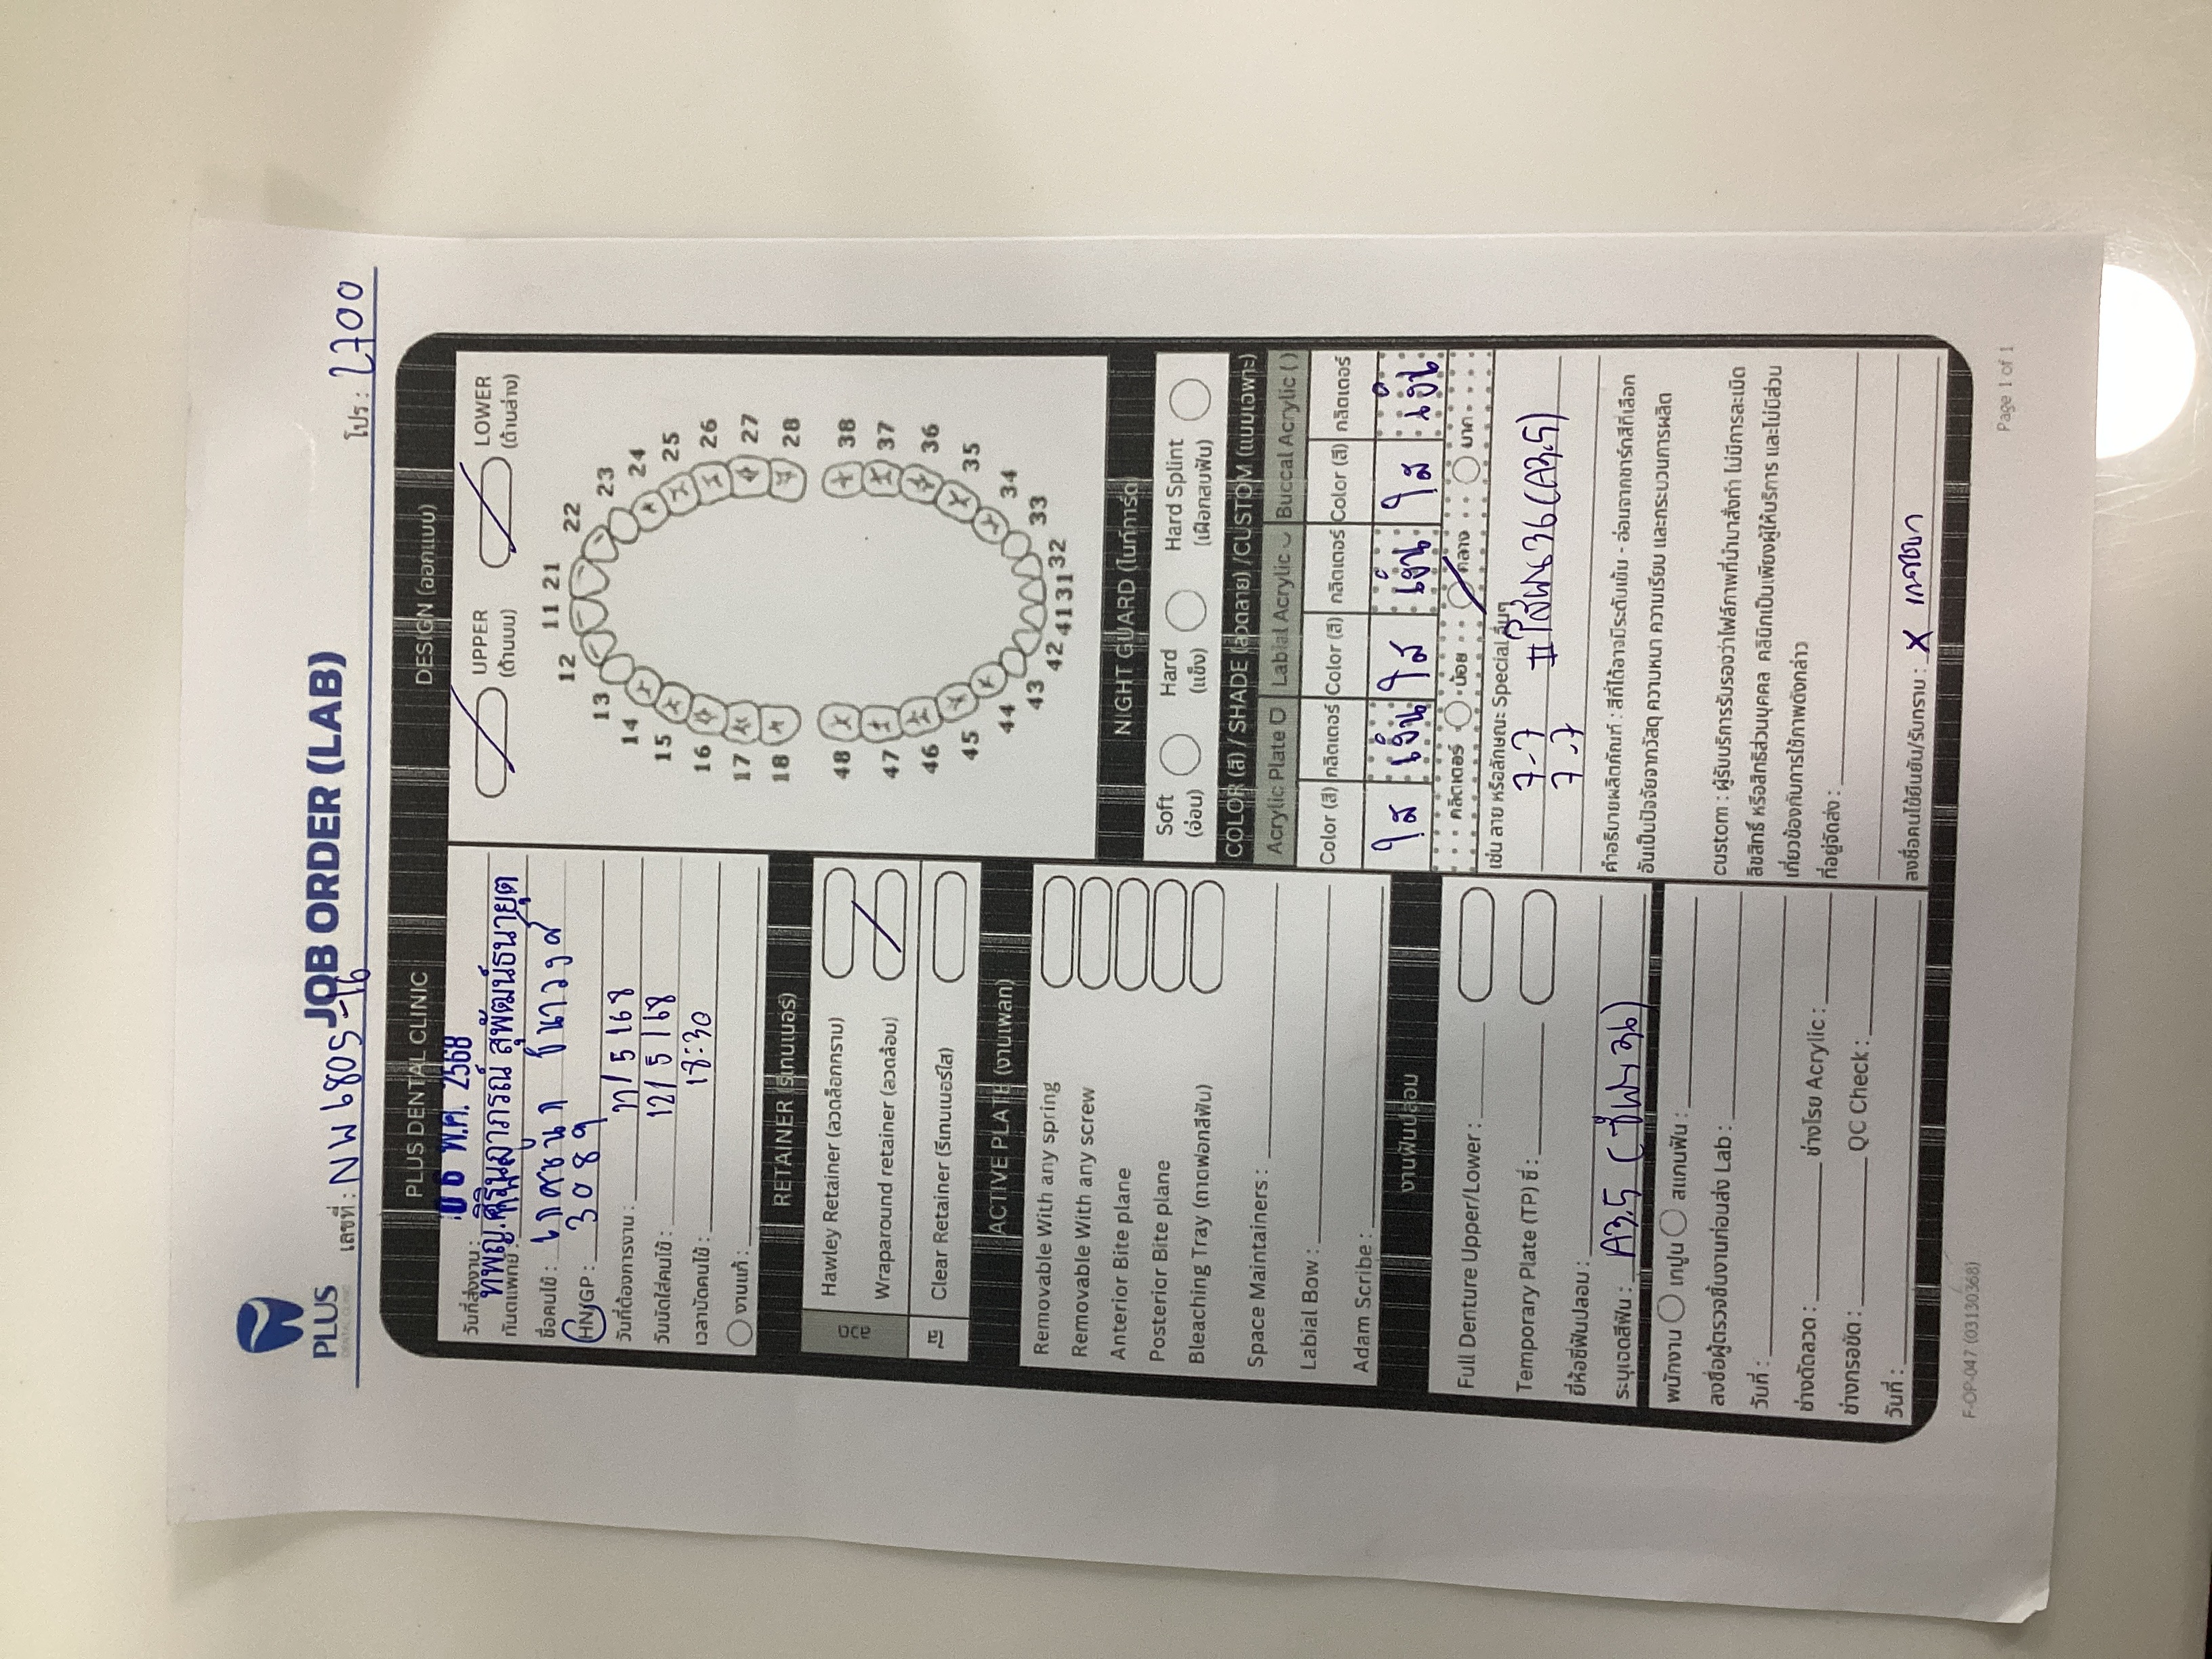 PLUS
DENTAL CLINIC
JOB ORDER (LAB)
เลขที่ : NW6805-16
โปร : 2700
PLUS DENTAL CLINIC
วันที่ส่งงาน : 06 พ.ค. 2568
ทันตแพทย์ : ทพญ.ศิรินฎาภรณ์ สุพัฒน์ธนายุต
ชื่อคนไข้ : เกศชนก
HN/GP : 3089
วันที่ต้องการงาน : 11/5/68
วันนัดใส่คนไข้ : 12/5/68
เวลานัดคนไข้ : 18:30
งานแก้ :
RETAINER (รีเทนเนอร์)
ลวด
Hawley Retainer (ลวดล็อกกราม)
Wraparound retainer (ลวดล้อม)
ใส
Clear Retainer (รีเทนเนอร์ใส)
ACTIVE PLATE (งานเพลท)
Removable With any spring
Removable With any screw
Anterior Bite plane
Posterior Bite plane
Bleaching Tray (ถาดฟอกสีฟัน)
Space Maintainers :
Labial Bow :
Adam Scribe :
งานฟันปลอม
Full Denture Upper/Lower :
Temporary Plate (TP) ซี่ :
ยี่ห้อซี่ฟันปลอม :
ระบุเฉดสีฟัน : A3.5 (ซี่ฟัน 36)
พนักงาน เทปูน สแกนฟัน :
ลงชื่อผู้ตรวจชิ้นงานก่อนส่ง Lab :
วันที่ :
ช่างดัดลวด : ช่างโรย Acrylic :
ช่างกรอขัด : QC Check :
วันที่ :
DESIGN (ออกแบบ)
UPPER
(ด้านบน)
LOWER
(ด้านล่าง)
11 21
12 22
13 23
14 24
15 25
16 26
17 27
18 28
48 38
47 37
46 36
45 35
44 34
43 33
42 41 31 32
NIGHT GUARD (ไนท์การ์ด)
Soft
(อ่อน)
Hard
(แข็ง)
Hard Splint
(เฝือกสบฟัน)
COLOR (สี) / SHADE (ลวดลาย) /CUSTOM (แบบเฉพาะ)
Acrylic Plate Labial Acrylic Buccal Acrylic ( )
Color (สี) กลิตเตอร์ Color (สี) กลิตเตอร์ Color (สี) กลิตเตอร์
ใส เงิน ใส เงิน ใส เงิน
กลิตเตอร์ น้อย กลาง มาก
เช่น ลาย หรือลักษณะ Special อื่นๆ
7-7 #ใส่ฟัน 36 (A3.5)
7-7
คำอธิบายผลิตภัณฑ์ : สีที่ได้อาจมีระดับเข้ม - อ่อนจากชาร์ทสีที่เลือก
อันเป็นปัจจัยจากวัสดุ ความหนา ความเรียบ และกระบวนการผลิต
custom : ผู้รับบริการรับรองว่าไฟล์ภาพที่นำมาสั่งทำ ไม่มีการละเมิด
ลิขสิทธิ์ หรือสิทธิส่วนบุคคล คลินิกเป็นเพียงผู้ให้บริการ และไม่มีส่วน
เกี่ยวข้องกับการใช้ภาพดังกล่าว
ที่อยู่จัดส่ง :
ลงชื่อคนไข้ยืนยัน/รับทราบ : X เกศชนก
F-OP-047 (03130368)
Page 1 of 1